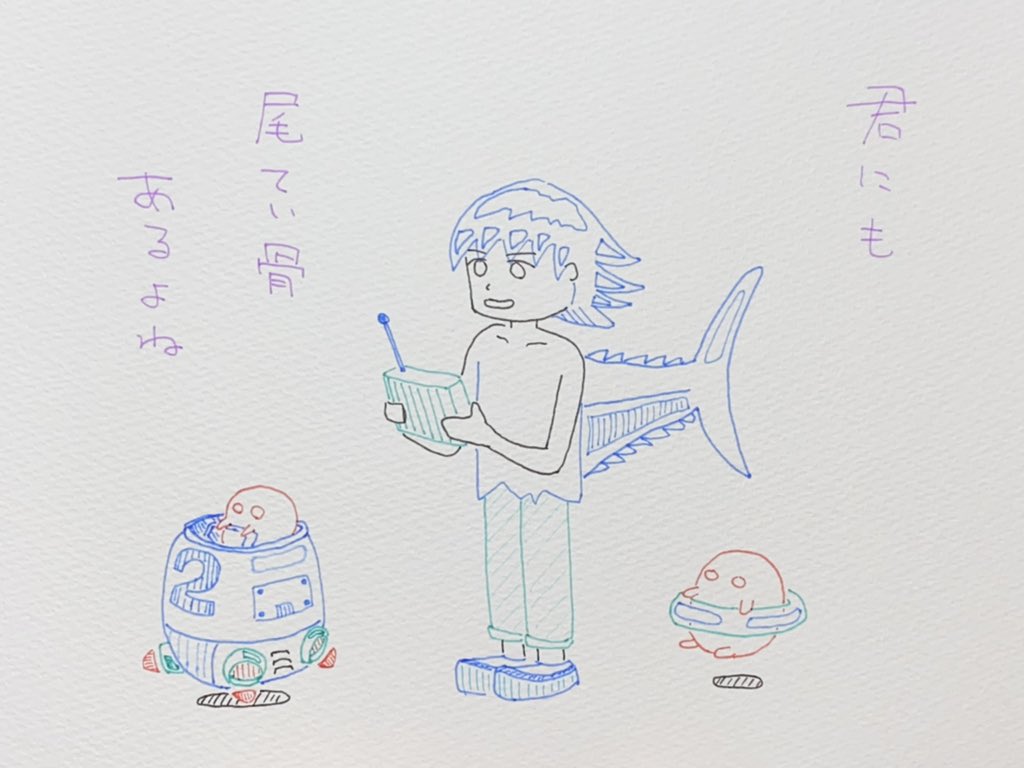 君にも
尾てい骨
あるよね
2